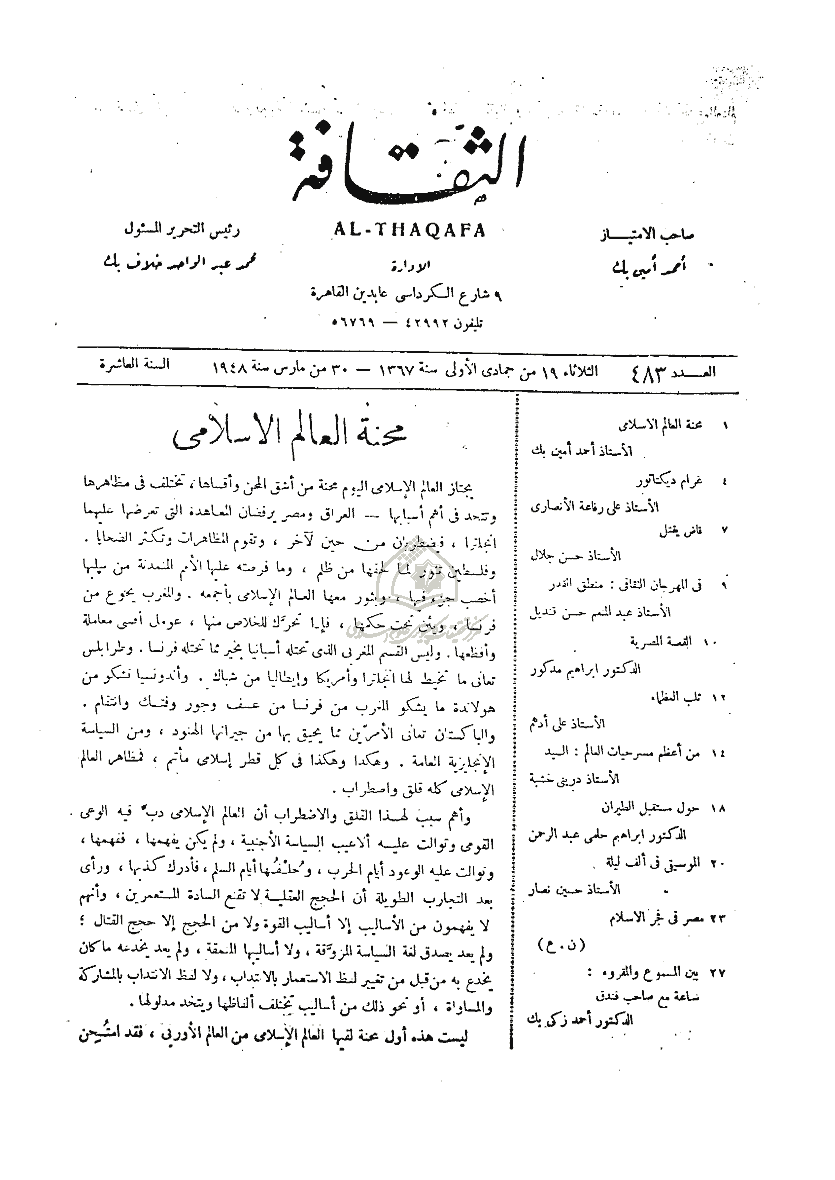 الثقافة
AL-THAQAFA
صاحب الامتياز
أحمد أمين بك
الإدارة
٩ شارع الكرداسى عابدين القاهرة
تليفون ٤٢٩٩٢ — ٥٦٧٦٩
رئيس التحرير المسئول
محمد عبد الواحد خلاف بك
العدد ٤٨٣ الثلاثاء ١٩ من جمادى الأولى سنة ١٣٦٧ — ٣٠ من مارس سنة ١٩٤٨ السنة العاشرة
١ محنة العالم الاسلامى
الأستاذ أحمد أمين بك
٤ غرام ديكتاتور
الأستاذ على رفاعة الأنصارى
٧ قاض يقتل
الأستاذ حسن جلال
٩ فى المهرجان الثقافى : منطق القدر
الأستاذ عبد المنعم حسن قنديل
١٠ القصة المصرية
الدكتور ابراهيم مدكور
١٢ ثلب العظماء
الأستاذ على أدهم
١٤ من أعظم مسرحيات العالم : السيد
الأستاذ درينى خشبة
١٨ حول مستقبل الطيران
الدكتور ابراهيم حلمى عبد الرحمن
٢٠ الموسيقى فى ألف ليلة
الأستاذ حسين نصار
٢٣ مصر فى فجر الاسلام
(ن . ع)
٢٧ بين المسموع والمقروء :
ساعة مع صاحب فندق
الدكتور أحمد زكى بك
محنة العالم الاسلامى
يجتاز العالم الإسلامى اليوم محنة من أشق المحن وأقساها ، تختلف فى مظاهرها
وتتحد فى أهم أسبابها — العراق ومصر يرفضان المعاهدة التى تعرضها عليهما
انجلترا ، فيضطربان من حين لآخر ، وتقوم المظاهرات وتكثر الضحايا .
وفلسطين تثور لما لحقها من ظلم ، وما فرضته عليها الأمم المتمدنة من سلبها
أخصب جزء فيها ، ويثور معها العالم الإسلامى بأجمعه . والمغرب يجوع من
فرنسا ، ويئن تحت حكمها ، فإذا تحرك للخلاص منها ، عومل أقسى معاملة
وأفظعها . وليس القسم المغربى الذى تحتله أسبانيا بخير مما تحتله فرنسا . وطرابلس
تعانى ما تخيط لها انجلترا وأمريكا وإيطاليا من شباك . وأندونسيا تشكو من
هولاندة ما يشكو المغرب من فرنسا من عسف وجور وفتك وانتقام .
والباكستان تعانى الأمرّين مما يحيق بها من جيرانها الهنود ، ومن السياسة
الإنجليزية العامة . وهكذا وهكذا فى كل قطر إسلامى مأتم ، فمظاهر العالم
الإسلامى كله قلق واضطراب .
وأهم سبب لهذا القلق والاضطراب أن العالم الإسلامى دبّ فيه الوعى
القومى وتوالت عليه ألاعيب السياسة الأجنبية ، ولم يكن يفهمها ، ففهمها ،
وتوالت عليه الوعود أيام الحرب ، وخُلفُها أيام السلم ، فأدرك كذبها ، ورأى
بعد التجارب الطويلة أن الحجج العقلية لا تقنع السادة المستعمرين ، وأنهم
لا يفهمون من الأساليب إلا أساليب القوة ولا من الحجج إلا حجج القتال ؛
ولم يعد يصدق لغة السياسة المزوّقة ، ولا أساليبها المنمقة ، ولم يعد يخدعه ما كان
يخدع به من قبل من تغيير لفظ الاستعمار بالانتداب ، ولا لفظ الانتداب بالمشاركة
والمساواة ، أو نحو ذلك من أساليب تختلف ألفاظها ويتحد مدلولها .
ليست هذه أول محنة لقيها العالم الإسلامى من العالم الأوربى ، فقد امتُحِن